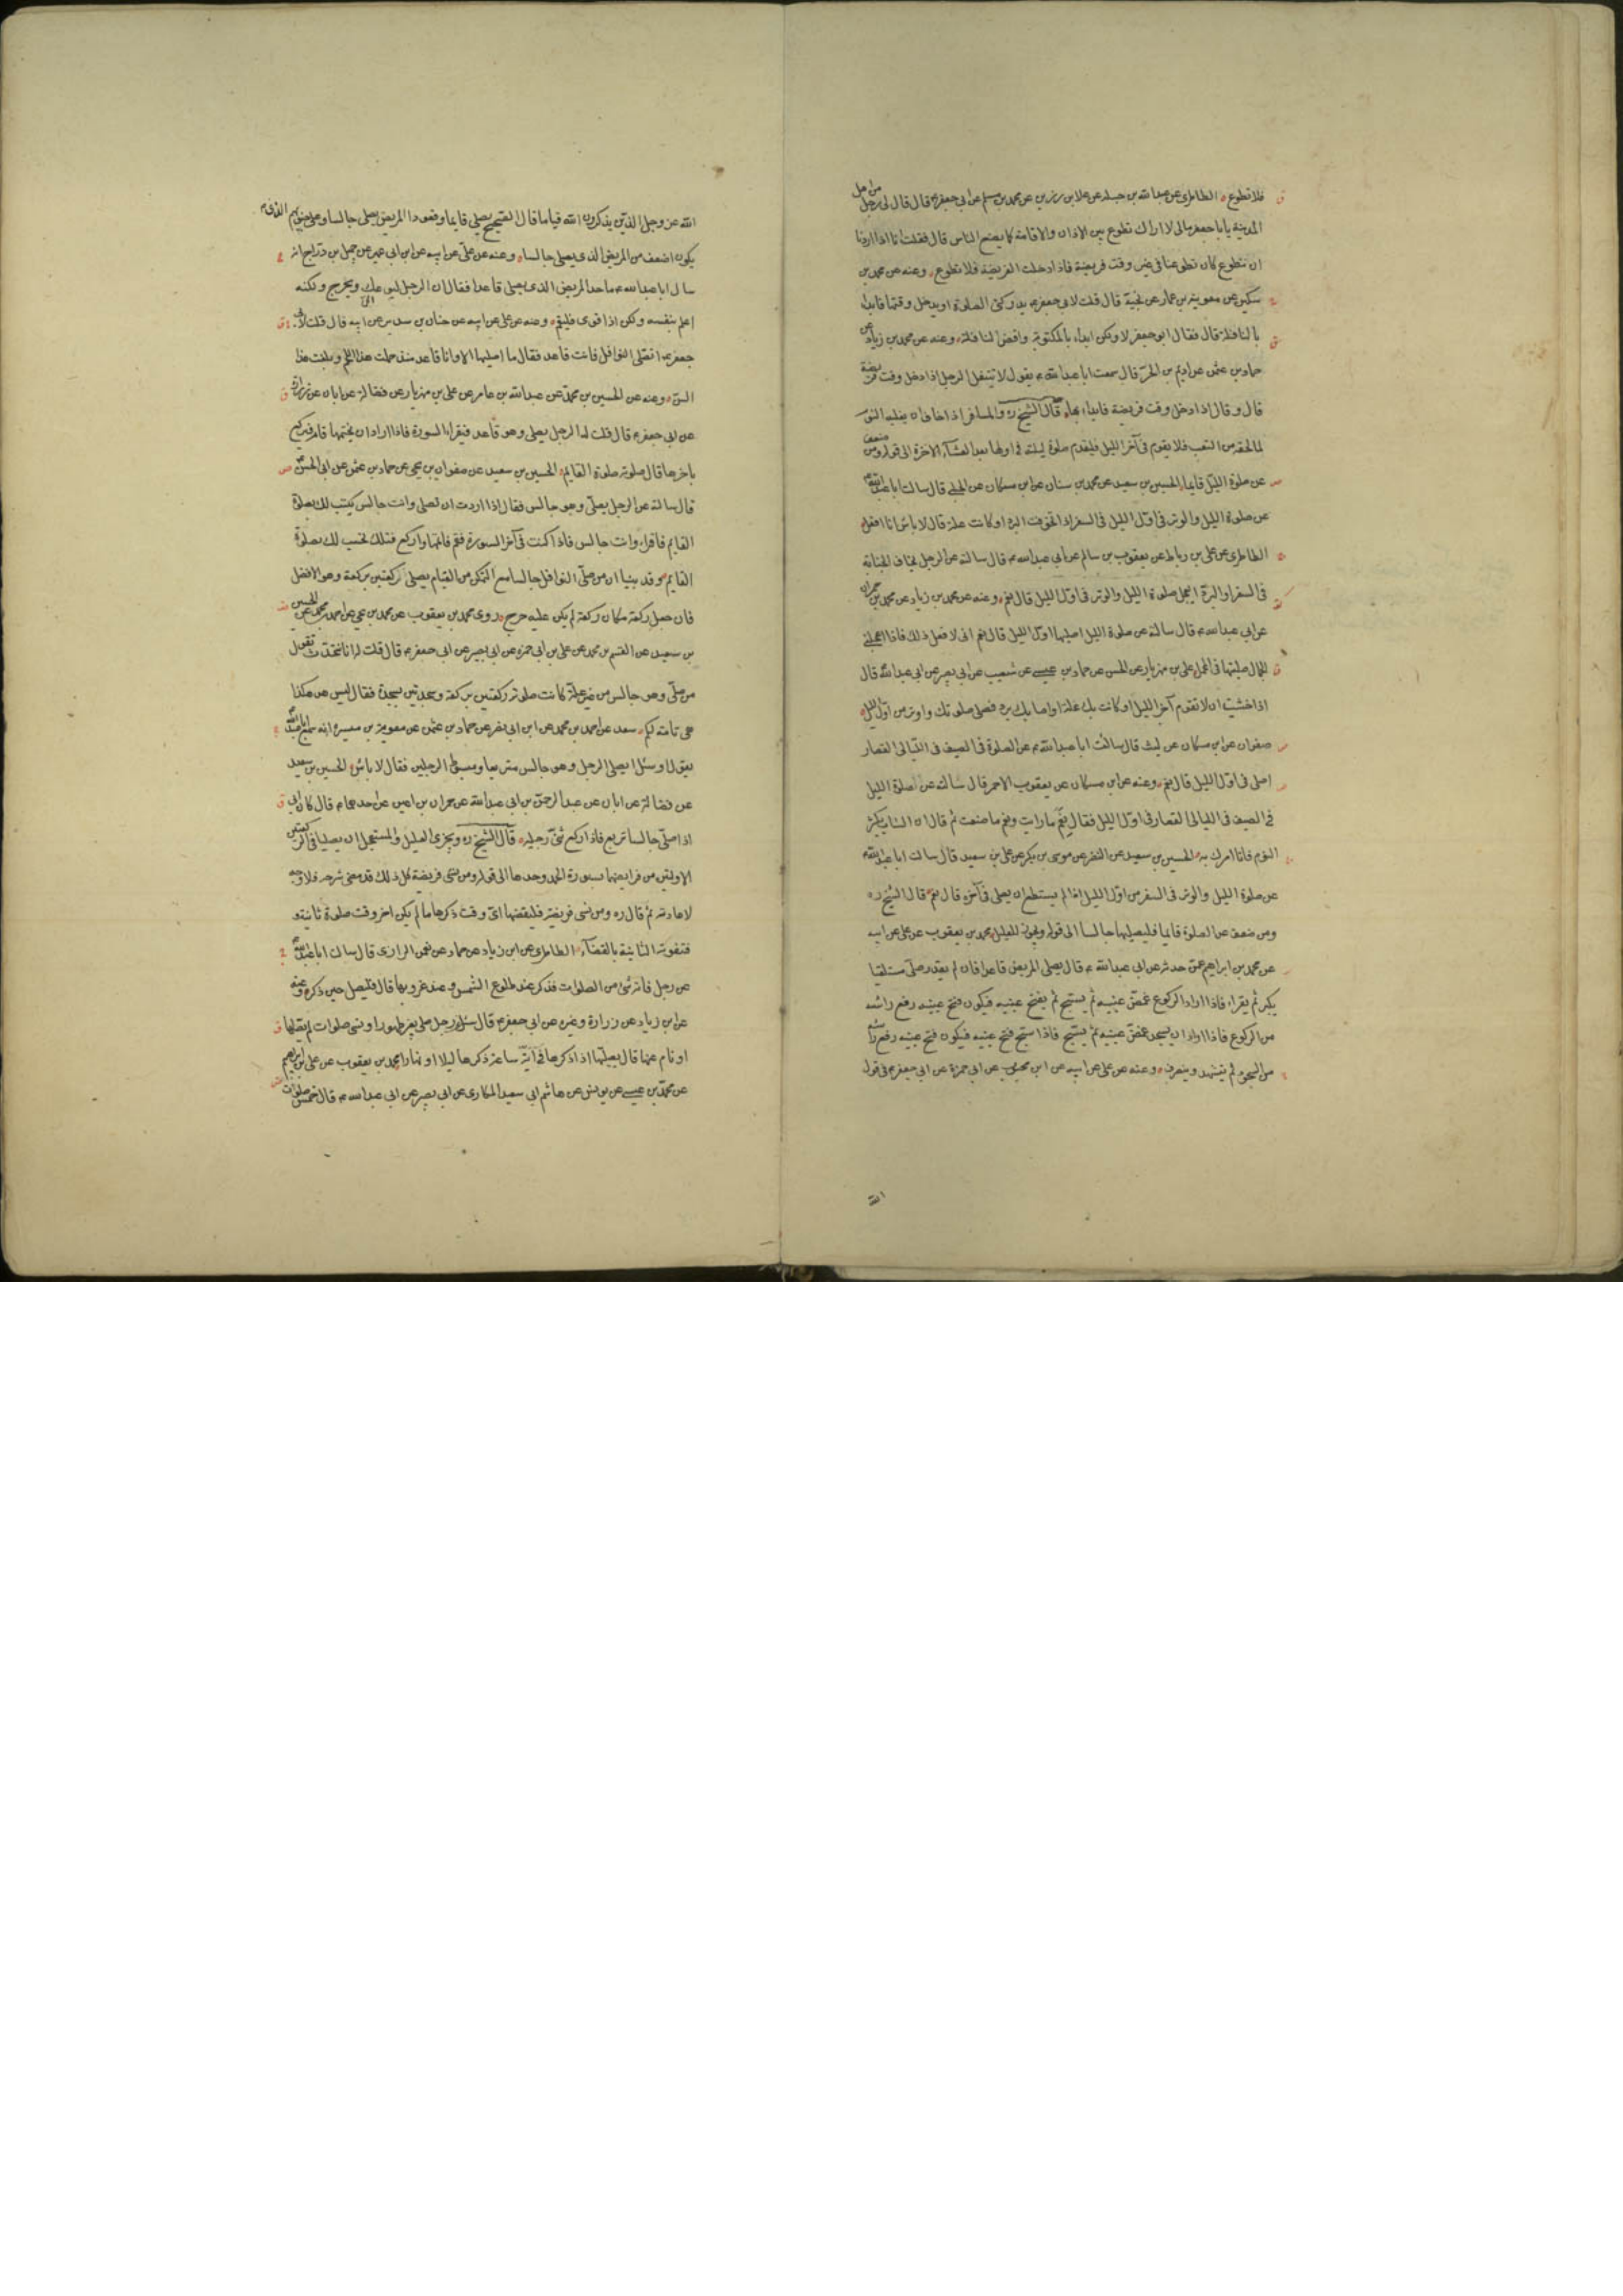 فلا تطوع الطاطرى عن عبدالله بن جبلة عن علا بن رزين عن محمد بن مسلم عن ابى جعفر ع قال قال لى رجل من اهل
المدينة يا با جعفر مالى لا اراك تطوع بين الاذان والاقامة كما يصنع الناس قال فقلت انا اذا اردنا
ان نتطوع كان تطوعنا فى غير وقت فريضة فاذا دخلت الفريضة فلا تطوع وعنه عن محمد بن
سكين عن معوية بن عمار عن نجية قال قلت لابى جعفر ع يدركنى الصلوة او يدخل وقتها فابدا
بالنافلة قال فقال ابو جعفر لا ولكن ابداء بالمكتوبة واقض النافلة وعنه عن محمد بن زياد عن
حماد بن عثمن عن اديم بن الحر قال سمعت ابا عبدالله ع يقول لا تتنفل الرجل اذا دخل وقت فريضة
قال وقال اذا دخل وقت فريضة فابداء بها قال الشيخ ره والمسافر اذا خاف ان يغلبه النوم
لما لحقه من التعب فلا يقوم فى آخر الليل فليقدم صلوة ليلته فى اولها بعد العشآء الاخرة الى قوله ومن ضعف
عن صلوة الليل قايما الحسين بن سعيد عن محمد بن سنان عن ابن مسكان عن الحلبى قال سالت ابا عبدالله ع
عن صلوة الليل والوتر فى اول الليل فى السفر اذا تخوفت البرد او كانت علة قال لا باس انا افعل
الطاطرى عن على بن رباط عن يعقوب بن سالم عن ابى عبدالله ع قال سالته عن الرجل يخاف الجنابة
فى السفر او البرد ايعجل صلوة الليل والوتر فى اول الليل قال نعم وعنه عن محمد بن زياد عن محمد بن حمران
عن ابى عبدالله ع قال سالته عن صلوة الليل اصليها اول الليل قال نعم انى لافعل ذلك فاذا اعجلنى
الجمال صليتها فى المحمل على بن مهزيار عن الحسن عن حماد بن عيسى عن شعيب عن ابى بصير عن ابى عبدالله ع قال
اذا خشيت ان لا تقوم آخر الليل او كانت بك علة او اصابك برد فصل صلوتك واوتر من اول الليل
صفوان عن ابن مسكان عن ليث قال سالت ابا عبدالله ع عن الصلوة فى الصيف فى الليالى القصار
اصلى فى اول الليل قال نعم وعنه عن ابن مسكان عن يعقوب الاحمر قال سالته عن صلوة الليل
فى الصيف فى الليالى القصار فى اول الليل فقال نعم ما رايت ونعم ما صنعت ثم قال ان الشاب يكثر
النوم فانا امرك به الحسين بن سعيد عن النضر عن موسى بن بكر عن على بن سعيد قال سالت ابا عبدالله ع
عن صلوة الليل والوتر فى السفر من اول الليل اذا لم يستطع ان يصلى فى آخره قال نعم قال الشيخ ره
ومن ضعف عن الصلوة قايما فليصليها جالسا الى قوله ويجوز للعليل محمد بن يعقوب عن على عن ابيه
عن محمد بن ابراهيم عمن حدثه عن ابى عبدالله ع قال يصلى المريض قاعدا فان لم يقدر صلى مستلقيا
يكبر ثم يقراء فاذا اراد الركوع غمض عينيه ثم يسبح ثم يفتح عينيه فيكون فتح عينيه رفع راسه
من الركوع فاذا اراد ان يسجد غمض عينيه ثم يسبح فاذا سبح فتح عينيه فيكون فتح عينيه رفع راسه
من السجود ثم يتشهد وينصرف وعنه عن على عن ابيه عن ابن محبوب عن ابى حمزة عن ابى جعفر ع فى قول
الله
الله عز وجل الذين يذكرون الله قياما قال الصحيح يصلى قايما وقعودا المريض يصلى جالسا وعلى جنوبهم الذى
يكون اضعف من المريض الذى يصلى جالسا وعنه عن على عن ابيه عن ابن ابى عمير عن جميل بن دراج انه
سال ابا عبدالله ع ما حد المريض الذى يصلى قاعدا فقال ان الرجل ليوعك ويحرج ولكنه
اعلم بنفسه ولكن اذا قوى فليقم وعنه عن على عن ابيه عن حنان بن سدير عن ابيه قال قلت لابى
جعفر ع اتصلى النوافل فانت قاعد فقال ما اصليها الا وانا قاعد منذ حملت هذا اللحم وبلغت هذا
السن وعنه عن الحسين بن محمد عن عبدالله بن عامر عن على بن مهزيار عن فضالة عن ابان عن زرارة
عن ابى جعفر ع قال قلت له الرجل يصلى وهو قاعد فيقراء السورة فاذا اراد ان يختمها قام فيركع
باخرها قال صلوته صلوة القايم الحسين بن سعيد عن صفوان بن يحيى عن حماد بن عثمن عن ابى الحسن ع
قال سالته عن الرجل يصلى وهو جالس فقال اذا اردت ان تصلى وانت جالس يكتب لك بصلوة
القايم فاقراء وانت جالس فاذا كنت فى آخر السورة فقم فاتمها واركع فتلك تحسب لك بصلوة
القايم وقد بينا ان من صلى النوافل جالسا مع التمكن من القيام يصلى ركعتين بركعة وهو الافضل
فان جعل ركعة مكان ركعة لم يكن عليه حرج روى محمد بن يعقوب عن محمد بن يحيى عن احمد بن محمد عن الحسين
بن سعيد عن القسم بن محمد عن على بن ابى حمزه عن ابى بصير عن ابى جعفر ع قال قلت له انا نتحدث نقول
من صلى وهو جالس من غير علة كانت صلوته ركعتين بركعة وسجدتين بسجدة فقال ليس هو هكذا
هى تامة لكم سعد عن احمد بن محمد عن ابن ابى نصر عن حماد بن عثمن عن معوية بن ميسرة انه سمع ابا عبدالله ع
يقول او سئل ايصلى الرجل وهو جالس متربعا ومبسوط الرجلين فقال لا باس الحسين بن سعيد
عن فضالة عن ابان عن عبد الرحمن بن ابى عبدالله عن حمران بن اعين عن احدهما ع قال كان ابى
اذا صلى جالسا تربع فاذا ركع ثنى رجليه قال الشيخ ره ويجزى العليل والمستعجل ان يصليا فى الركعتين
الاولتين من فرايضهما بسورة الحمد وحدها الى قوله ومن نسى فريضة كل ذلك قد مضى شرحه فلا وجه
لاعادته ثم قال ره ومن نسى فريضة فليقضها اى وقت ذكرها ما لم يكن اخر وقت صلوة ثانية و
فتفوته الثانية بالقضآء الطاطرى عن ابن زياد عن حماد عن نعمن الرازى قال سالت ابا عبدالله ع
عن رجل فاته شىء من الصلوات فذكر عند طلوع الشمس وعند غروبها قال فليصل حين ذكره وعنه
عن ابن زياد عن زرارة وغيره عن ابى جعفر ع قال سئل رجل صلى بغير طهور او نسى صلوات لم يصلها
او نام عنها قال يصليها اذا ذكرها فى اية ساعة ذكرها ليلا او نهارا محمد بن يعقوب عن على بن ابراهيم
عن محمد بن عيسى عن يونس عن هاشم ابى سعيد المكارى عن ابى بصير عن ابى عبدالله ع قال خمس صلوات